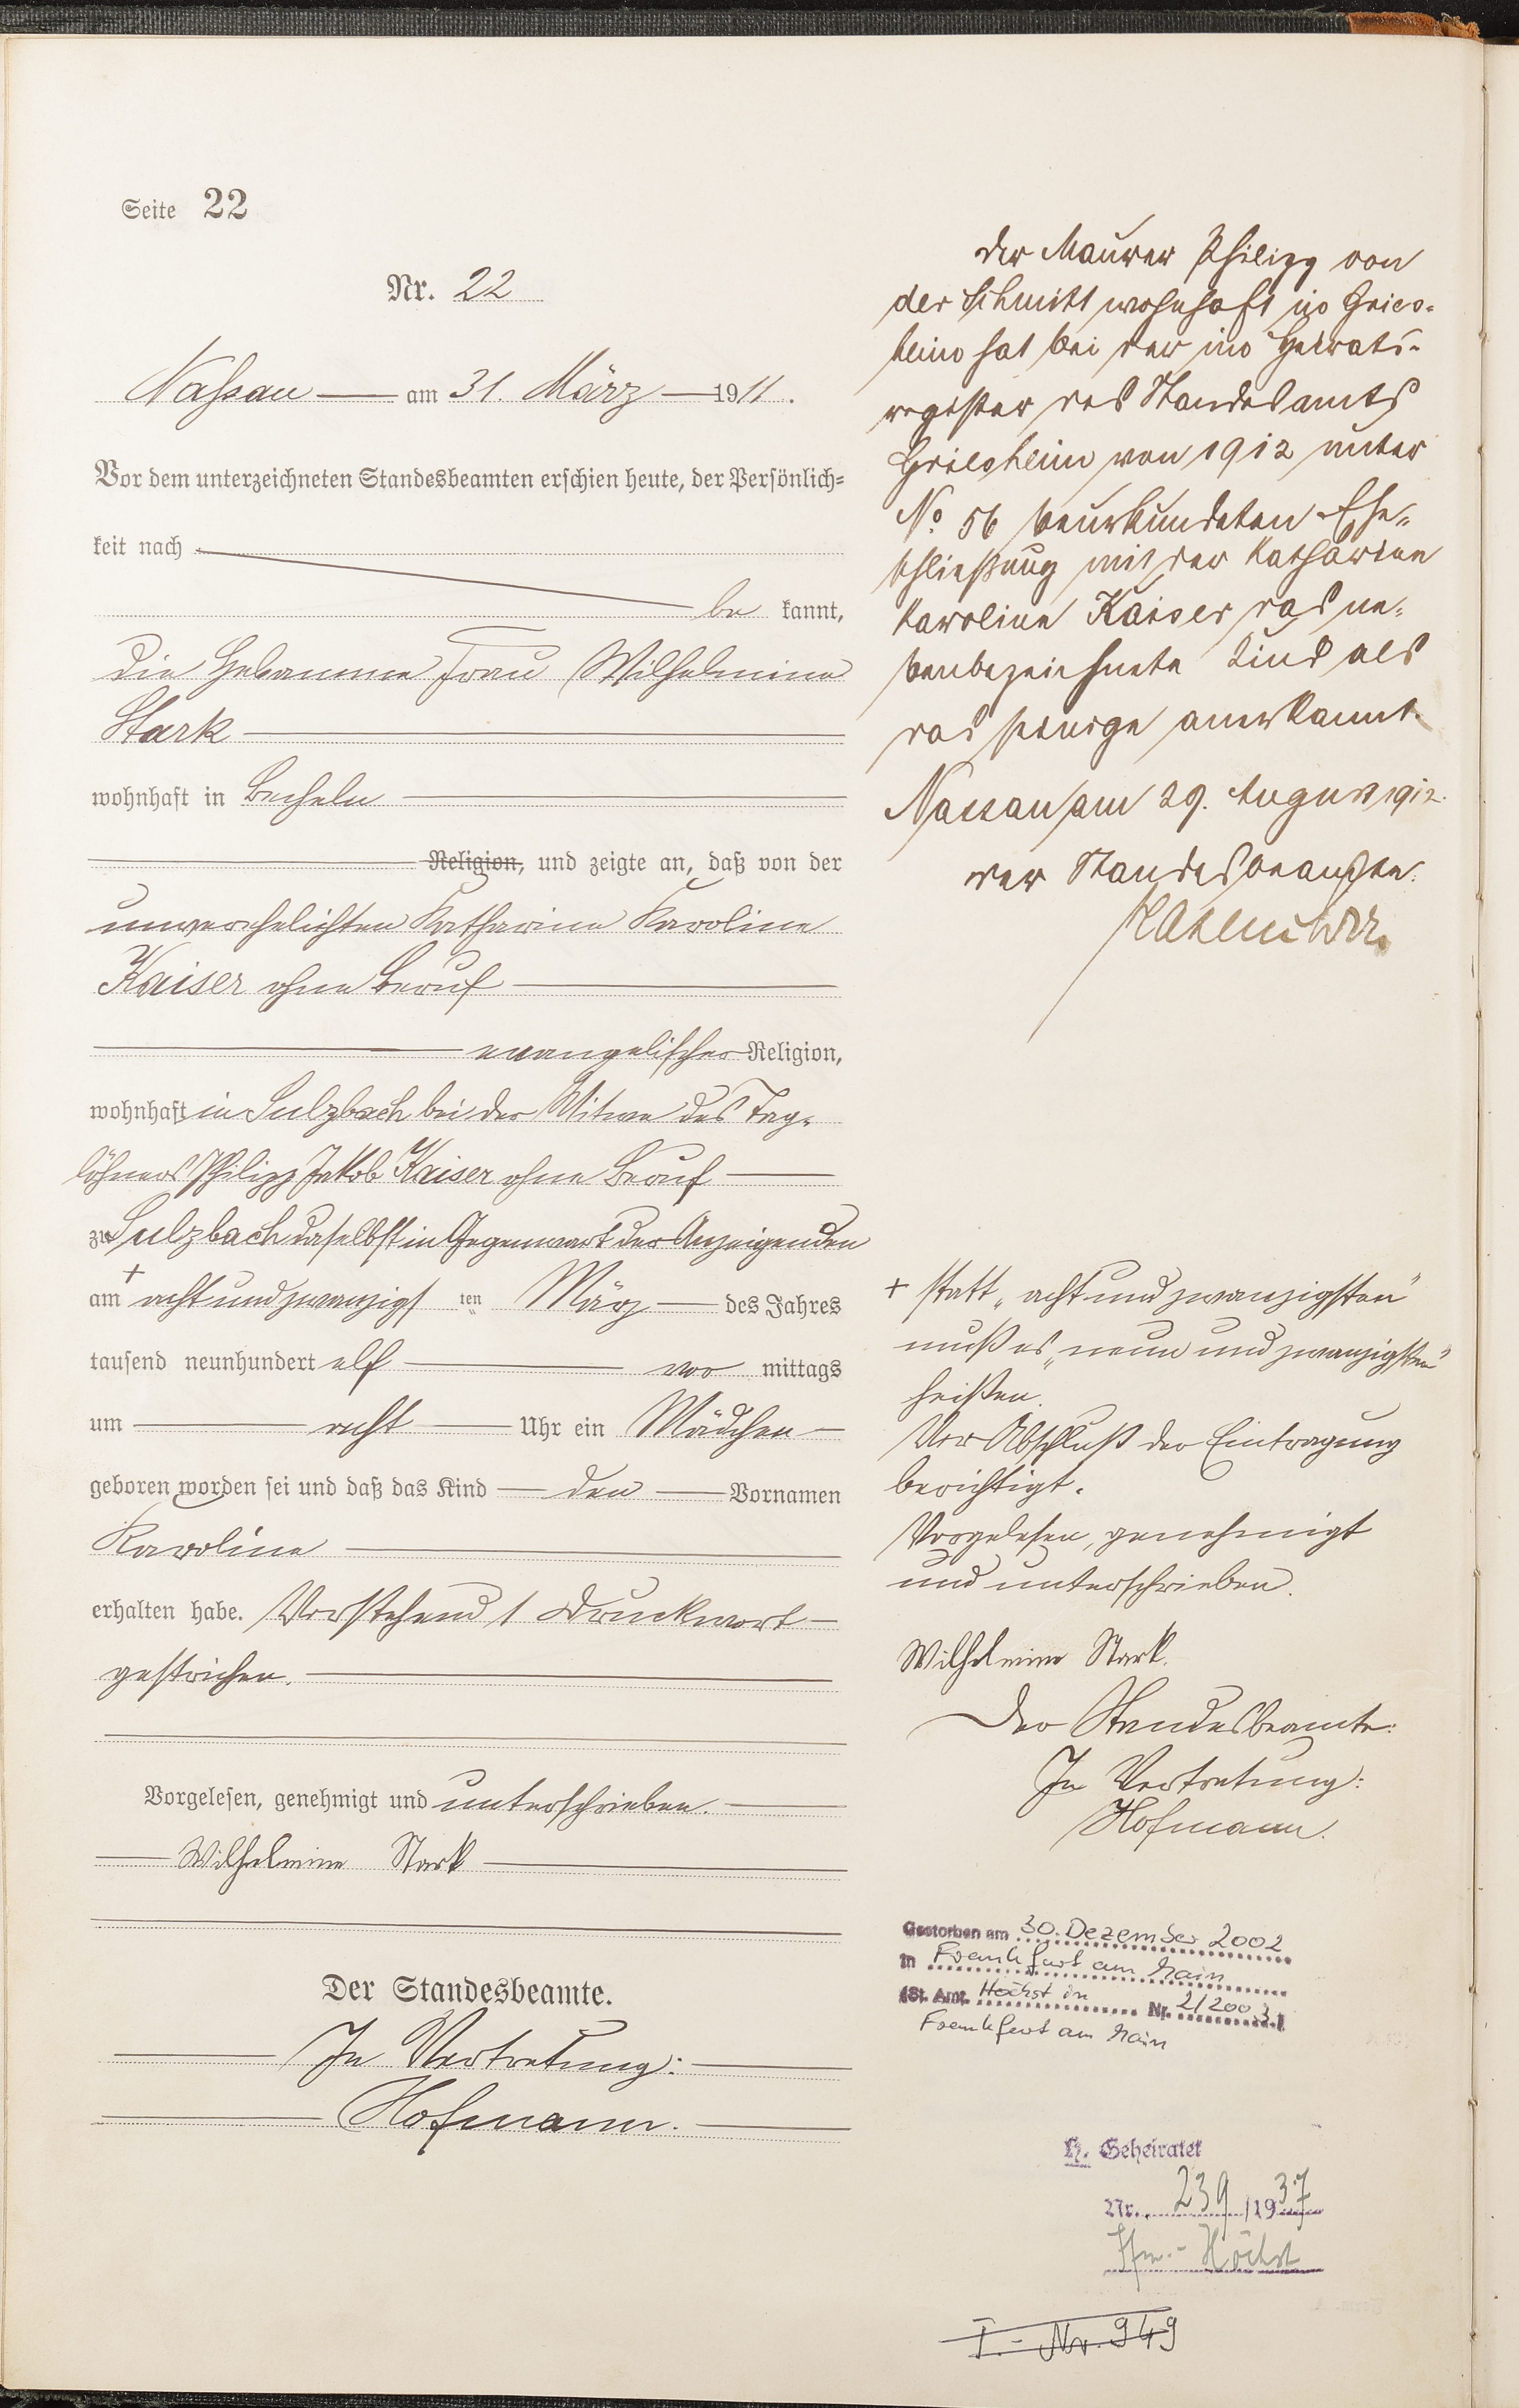 Seite 22
Nr. 22
Nassau am 31. März 1911.
Vor dem unterzeichneten Standesbeamten erschien heute, der Persönlich=
keit nach
be kannt,
die Hebamme Frau Wilhelmine
Stark
wohnhaft in Becheln
Religion, und zeigte an, daß von der
unverehelichten Katharine Karoline
Kaiser ohne Beruf
evangelischer Religion,
wohnhaft in Sulzbach bei der Witwe des Tag-
löhners Philipp Jakob Kaiser ohne Beruf
zu Sulzbach daselbst in Gegenwart der Anzeigenden
am + acht und zwanzigs ten März des Jahres
tausend neunhundert elf vor mittags
um acht Uhr ein Mädchen
geboren worden sei und daß das Kind den Vornamen
Karoline
erhalten habe. Vorstehend 1 Druckwort
gestrichen.
Vorgelesen, genehmigt und unterschrieben.
Wilhelmine Stark
Der Standesbeamte.
In Vertretung:
Hofmann.
Der Maurer Philipp von
der Schmitt wohnhaft in Gries-
heim hat bei der im Heirats-
register des Standesamts
Griesheim von 1912 unter
No 56 beurkundeten Ehe-
schließung mit der Katharine
Karoline Kaiser das ne-
benbezeichnete Kind als
das seinige anerkannt.
Nassau am 29. August 1912.
Der Standesbeamte.
+ statt "acht und zwanzigsten"
muß es "neun und zwanzigsten"
heißen.
Vor Abschluß der Eintragung
berichtigt.
Vorgelesen, genehmigt
und unterschrieben.
Wilhelmine Stark.
Der Standesbeamte:
In Vertretung:
Hofmann.
Gestorben am 30. Dezember 2002
in Frankfurt am Main
(St. Amt. Höchst in Nr. 2/2003)
Frankfurt am Main
H. Geheiratet
Nr. 239/1937
Ffm.- Höchst
I.- Nr. 949